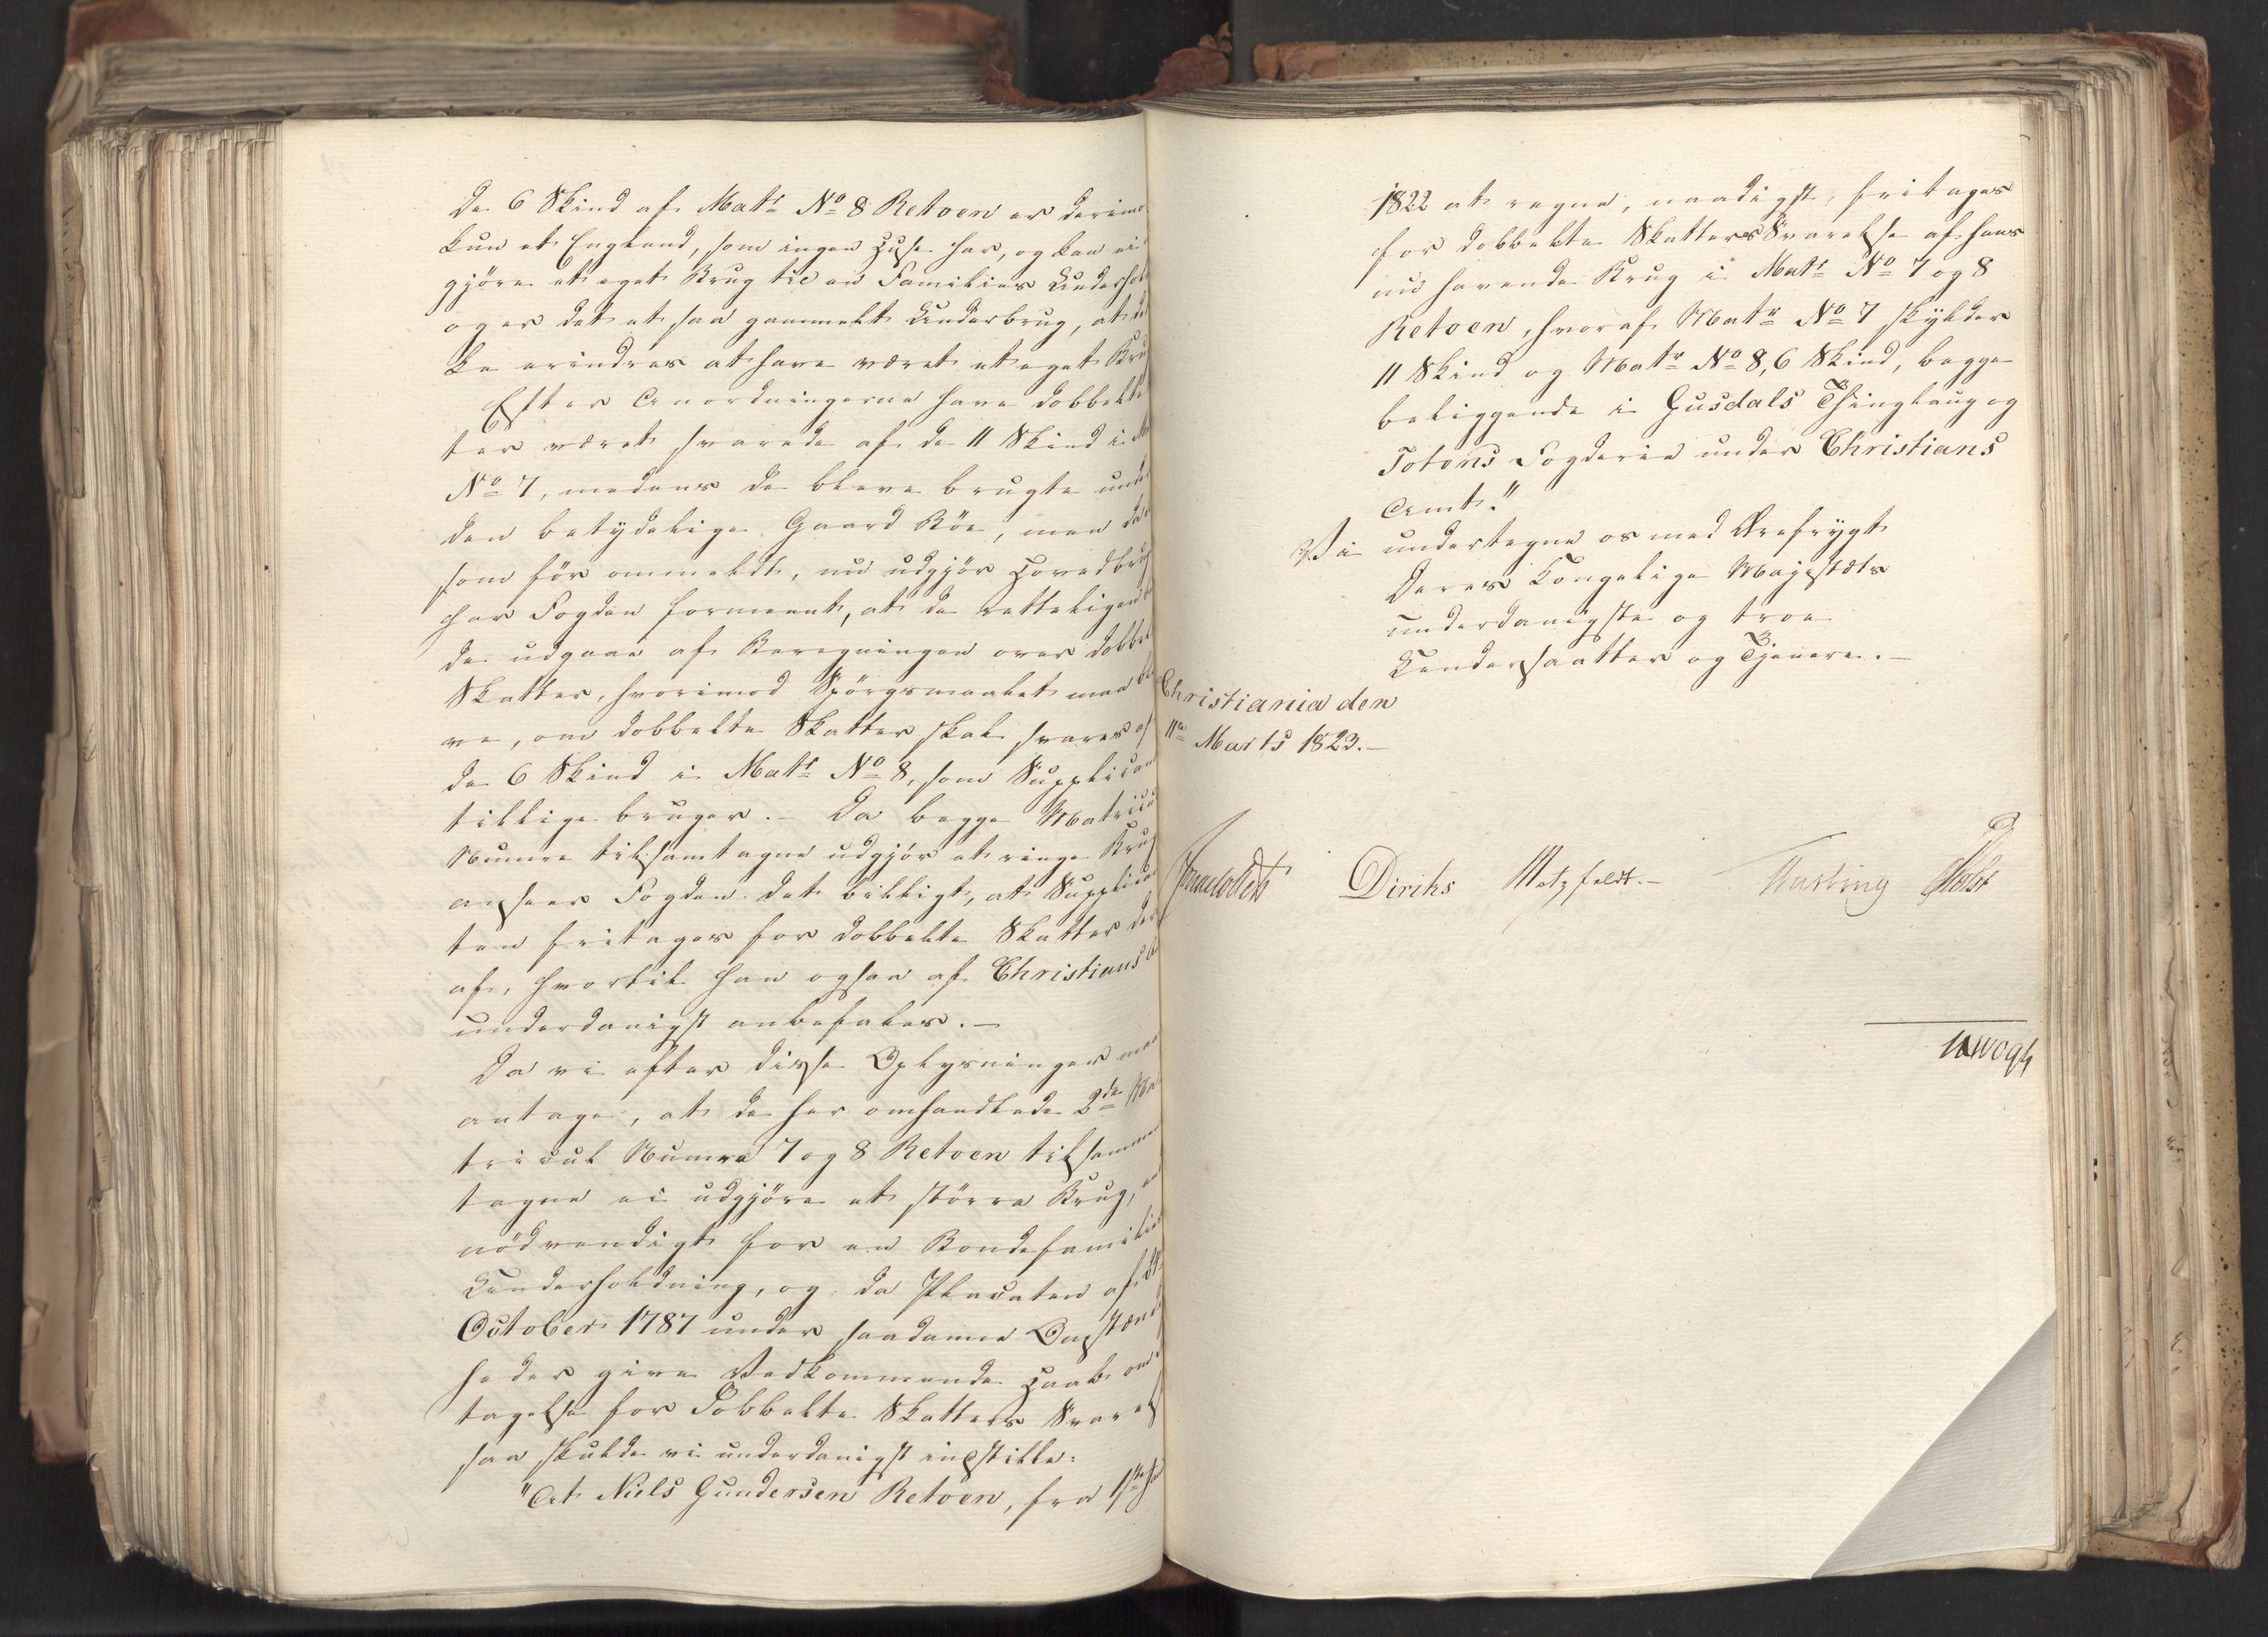 De 6 Skind af Matr No 8 Retoen er derimo
kun et England, som ingen Huse har, og kan ei
gjöre et eget Brug til en Families Underhol
og er det et saa gammelt Underbrug, at de
ke erindres at have været et eget Bru
Efter Anordningerne have dobbelte
ter været svarede af de 11 Skind i
No 7, medens de bleve brugte unde
den betydelige Gaard Böe, men da
som för ommeldt, nu udgjör Hovedbrug
har Fogden formeent, at de retteligen
de udgaae af Beregningen over dobbel
Skatter, hvorimod Spörgsmaalet maa bli
ve, om dobbelte Skatter skal svares af
de 6 Skind i Matr No 8, som Supplican
tillige bruger. – Da begge Matricu
Numre tilsamtagne udgjör et ringe Brug
ansees Fogden det billigt, at Supplican
ten fritages for dobbelte Skatter der
af, hvortil han ogsaa af Christians
underdanigst anbefales. –
Da vi efter disse Oplysninger maa
antage, at de her omhandlede 2de Ma
tricul Numre 7 og 8 Retoen tilsammen
tagne ei udgjöre et större Brug, en
nödvendigt for en Bondefamilies
Underholdning, og da Placaten af
October 1787 under saadanne Omstænd
heder give Vedkommende Haab om
tagelse for Dobbelte Skatters Svarels
saa skulde vi underdanigst indstille:
"At Niels Gundersen Retoen, fra 1ste Ja
1822 at regne, naadigst fritages
for dobbelte Skatters Svarelse af hans
nu havende Brug i Matr No 7 og 8
Retoen, hvoraf Matr No 7 skylder
11 Skind og Matr No 8, 6 Skind, begge
beliggende i Gusdals Thinglaug og
Totens Fogderie under Christians
Amt."
Vi undertegne os med Ærefrygt
Deres Kongelige Majestæts
underdanigste og troe
Undersaatter og Tjenere. –
Christiania den
11te Marts 1823. –
Diriks Motzfeldt. – Holst